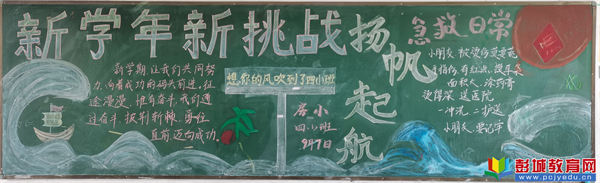 新学年新挑战扬帆起航
新学期 让我们共同努
力,向着成功的码头前进,征
途漫漫,惟有奋斗,我们通
过奋斗,披荆斩棘,勇往
直前迈向成功。
想你的风吹到了四小班
居小
四小班
9月7日
急救日常
小朋友
送医院
一冲洗 二护送
小朋友 要记牢
彭城教育网
www.pcjyedu.cn